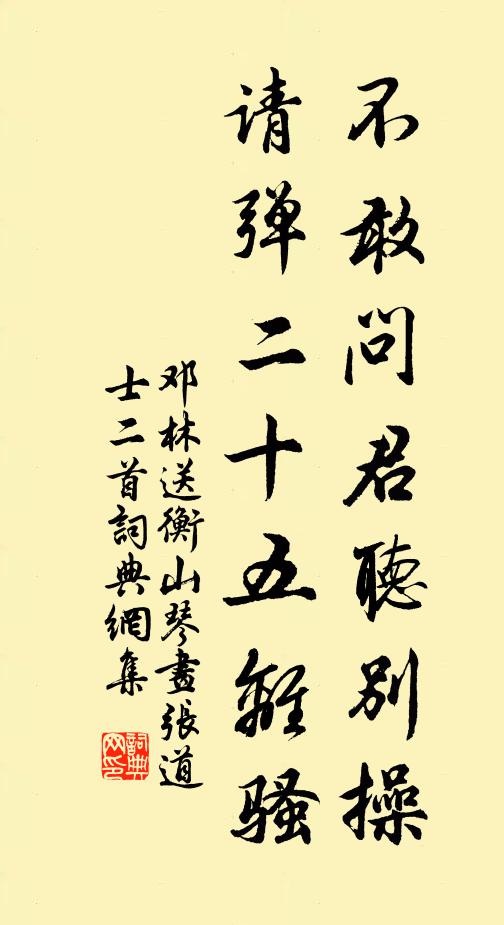 不敢问君聴别操
请弹二十五離骚
邓林送衡山琴畫張道
士二首詞典網集
詞典
网印